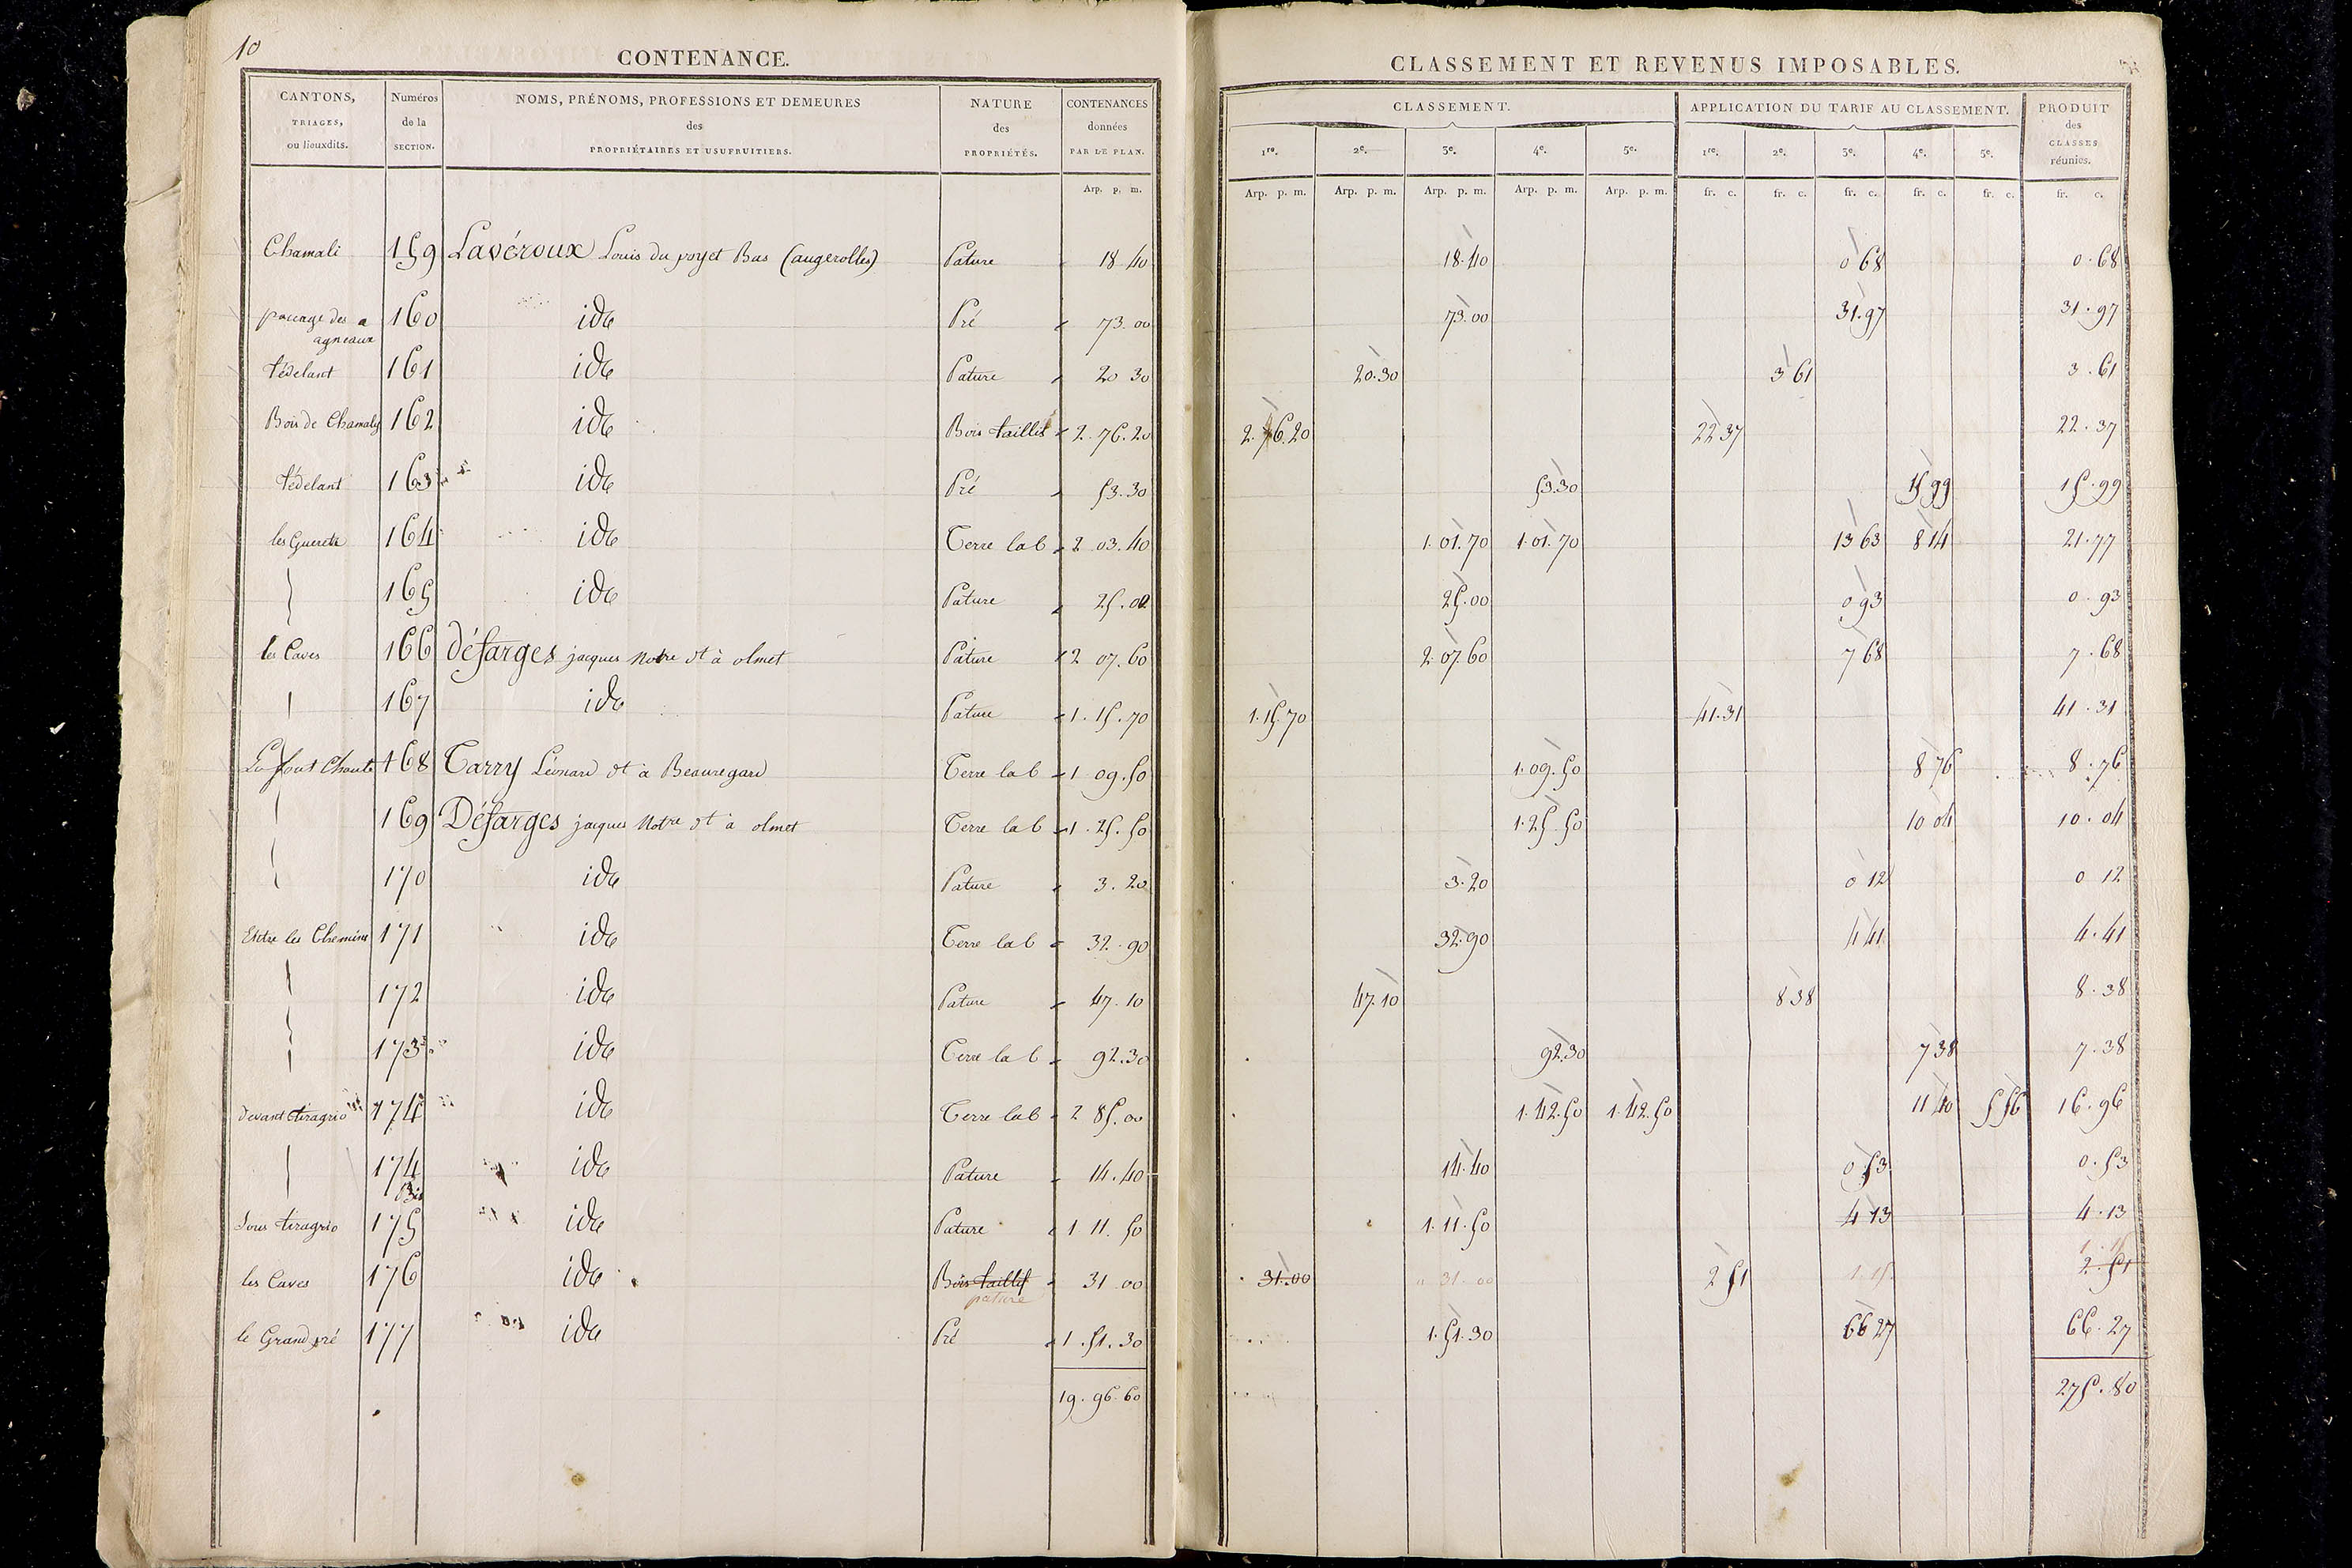 10
CONTENANCE.
CANTONS, TRIAGES, ou lieuxdits. Numéros de la SECTION. NOMS, PRÉNOMS, PROFESSIONS ET DEMEURES des PROPRIÉTAIRES ET USUFRUITIERS. NATURE des PROPRIÉTÉS. CONTENANCES données PAR LE PLAN.
Arp. p. m.
CLASSEMENT ET REVENUS IMPOSABLES.
CLASSEMENT. APPLICATION DU TARIF AU CLASSEMENT. PRODUIT des CLASSES réunies.
1re. 2e. 3e. 4e. 5e. 1re. 2e. 3e. 4e. 5e.
Arp. p. m. Arp. p. m. Arp. p. m. Arp. p. m. Arp. p. m. fr. c. fr. c. fr. c. fr. c. fr. c. fr. c.
Chamali 159 Lavéroux Louis du poyet Bas (augerolles) Pature 18 40 18.40 0 68 0.68
pacage des agneaux 160 ide Pré 73.00 73.00 31.97 31.97
tédelant 161 ide Pature 20 30 20.30 3 61 3.61
Bois de Chamaly 162 ide Bois taillis 2.76.20 2.76.20 22 37 22.37
tédelant 163 ide Pré 53.30 53.30 15 99 15.99
les Guerets 164 ide Terre lab 2 03.40 1.01.70 1.01.70 13 63 8 14 21.77
165 ide Pature 25.00 25.00 0 93 0.93
les Caves 166 Défarges jacques Notre dt à olmet Pature 2 07.60 2.07.60 7 68 7.68
167 ide Pature 1.15.70 1.15.70 41.31 41.31
La font Chaute 168 Tarry Léonard dt à Beauregard Terre lab 1 09.50 1.09.50 8 76 8.76
169 Défarges jacques Notre dt à olmet Terre lab 1.25.50 1.25.50 10 04 10.04
170 ide Pature 3.20 3.20 0 12 0 12
Entre les Chemins 171 ide Terre lab 32.90 32.90 4 41 4.41
172 ide Pature 47.10 47.10 8 38 8.38
173 ide Terre lab 92.30 92.30 7 38 7.38
devant tiragrio 174 ide Terre lab 2 85.00 1.42.50 1.42.50 11 40 5 56 16.96
174 Bis ide Pature 14.40 14.40 0.53 0.53
Sous tiragrio 175 ide Pature 1 11.50 1.11.50 4 13 4.13
les Caves 176 ide Bois taillis pature 31 00 31.00 31 00 2 51 1.15 2.51 1.15
le Grand pré 177 ide Pré 1.51.30 1.51.30 66 27 66.27
19.96.60 275.80